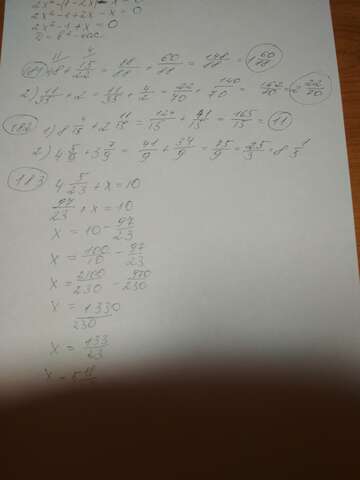 2x² - 1 + 2x - x = 0
2x² - 1 + x = 0
11 4
+ 15/22 = 88/88 + 60/88 = 148/88 = 1 60/88
2) 11/35 + 2 = 11/35 + 4/2 = 22/70 + 140/70 = 162/70 = 2 22/70
182 1) 8 4/15 + 2 11/15 = 124/15 + 41/15 = 165/15 = 11
2) 4 5/9 + 3 7/9 = 41/9 + 34/9 = 75/9 = 25/3 = 8 1/3
183
4 5/23 + x = 10
97/23 + x = 10
x = 10 - 97/23
x = 100/10 - 97/23
x = 2300/230 - 970/230
x = 1330/230
x = 133/23